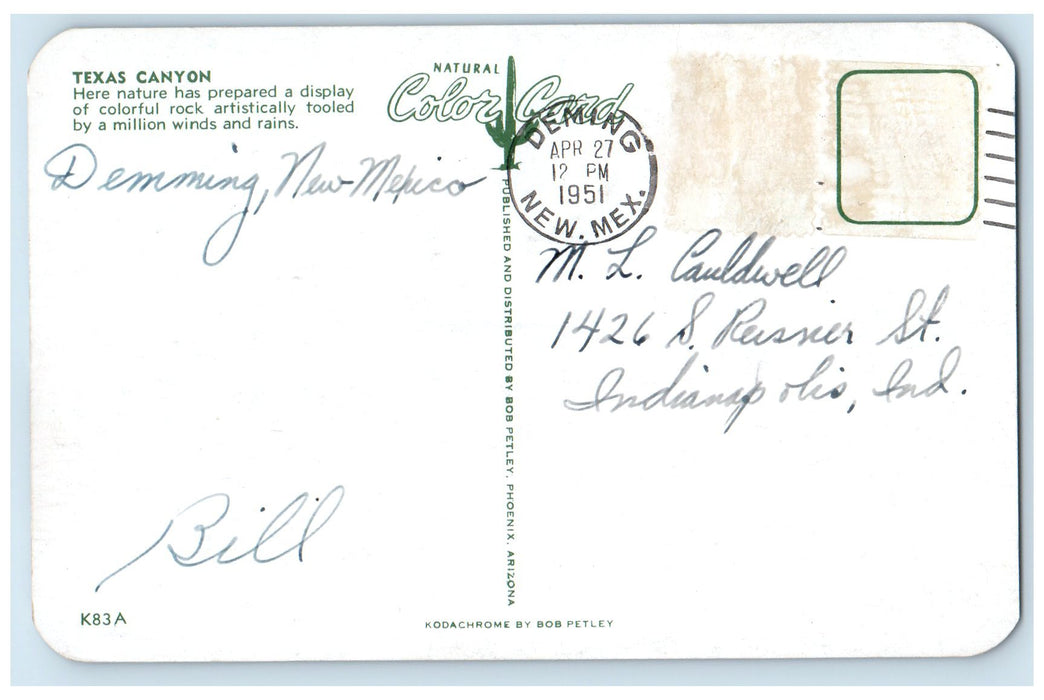 TEXAS CANYON
Here nature has prepared a display
of colorful rock artistically tooled
by a million winds and rains.
NATURAL
Color Card
DEMING
APR 27
12 PM
1951
NEW. MEX.
Demming, New Mexico
Bill
K83A
PUBLISHED AND DISTRIBUTED BY BOB PETLEY, PHOENIX, ARIZONA
M. L. Cauldwell
1426 S. Reisner St.
Indianapolis, Ind.
KODACHROME BY BOB PETLEY